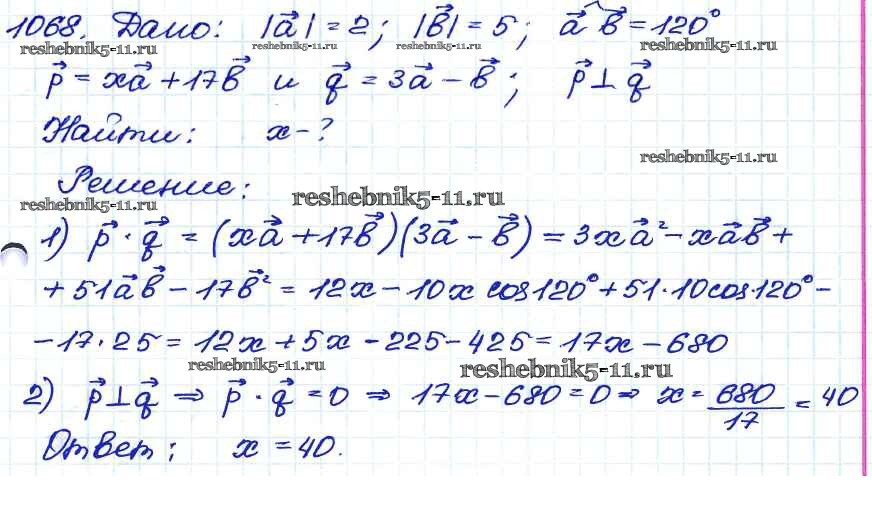 1068. Дано: |a⃗| = 2; |b⃗| = 5; a⃗ b⃗ = 120°
reshebnik5-11.ru reshebnik5-11.ru reshebnik5-11.ru reshebnik5-11.ru
p⃗ = xa⃗ + 17b⃗ и q⃗ = 3a⃗ - b⃗; p⃗ ⊥ q⃗
Найти: x - ?
reshebnik5-11.ru
Решение:
reshebnik5-11.ru reshebnik5-11.ru
1) p⃗ · q⃗ = (xa⃗ + 17b⃗)(3a⃗ - b⃗) = 3xa⃗² - xa⃗b⃗ +
+ 51a⃗b⃗ - 17b⃗² = 12x - 10x cos120° + 51·10cos·120° -
- 17·25 = 12x + 5x - 225 - 425 = 17x - 680
reshebnik5-11.ru reshebnik5-11.ru
2) p⃗ ⊥ q⃗ ⇒ p⃗ · q⃗ = 0 ⇒ 17x - 680 = 0 ⇒ x = 680/17 = 40
Ответ: x = 40.